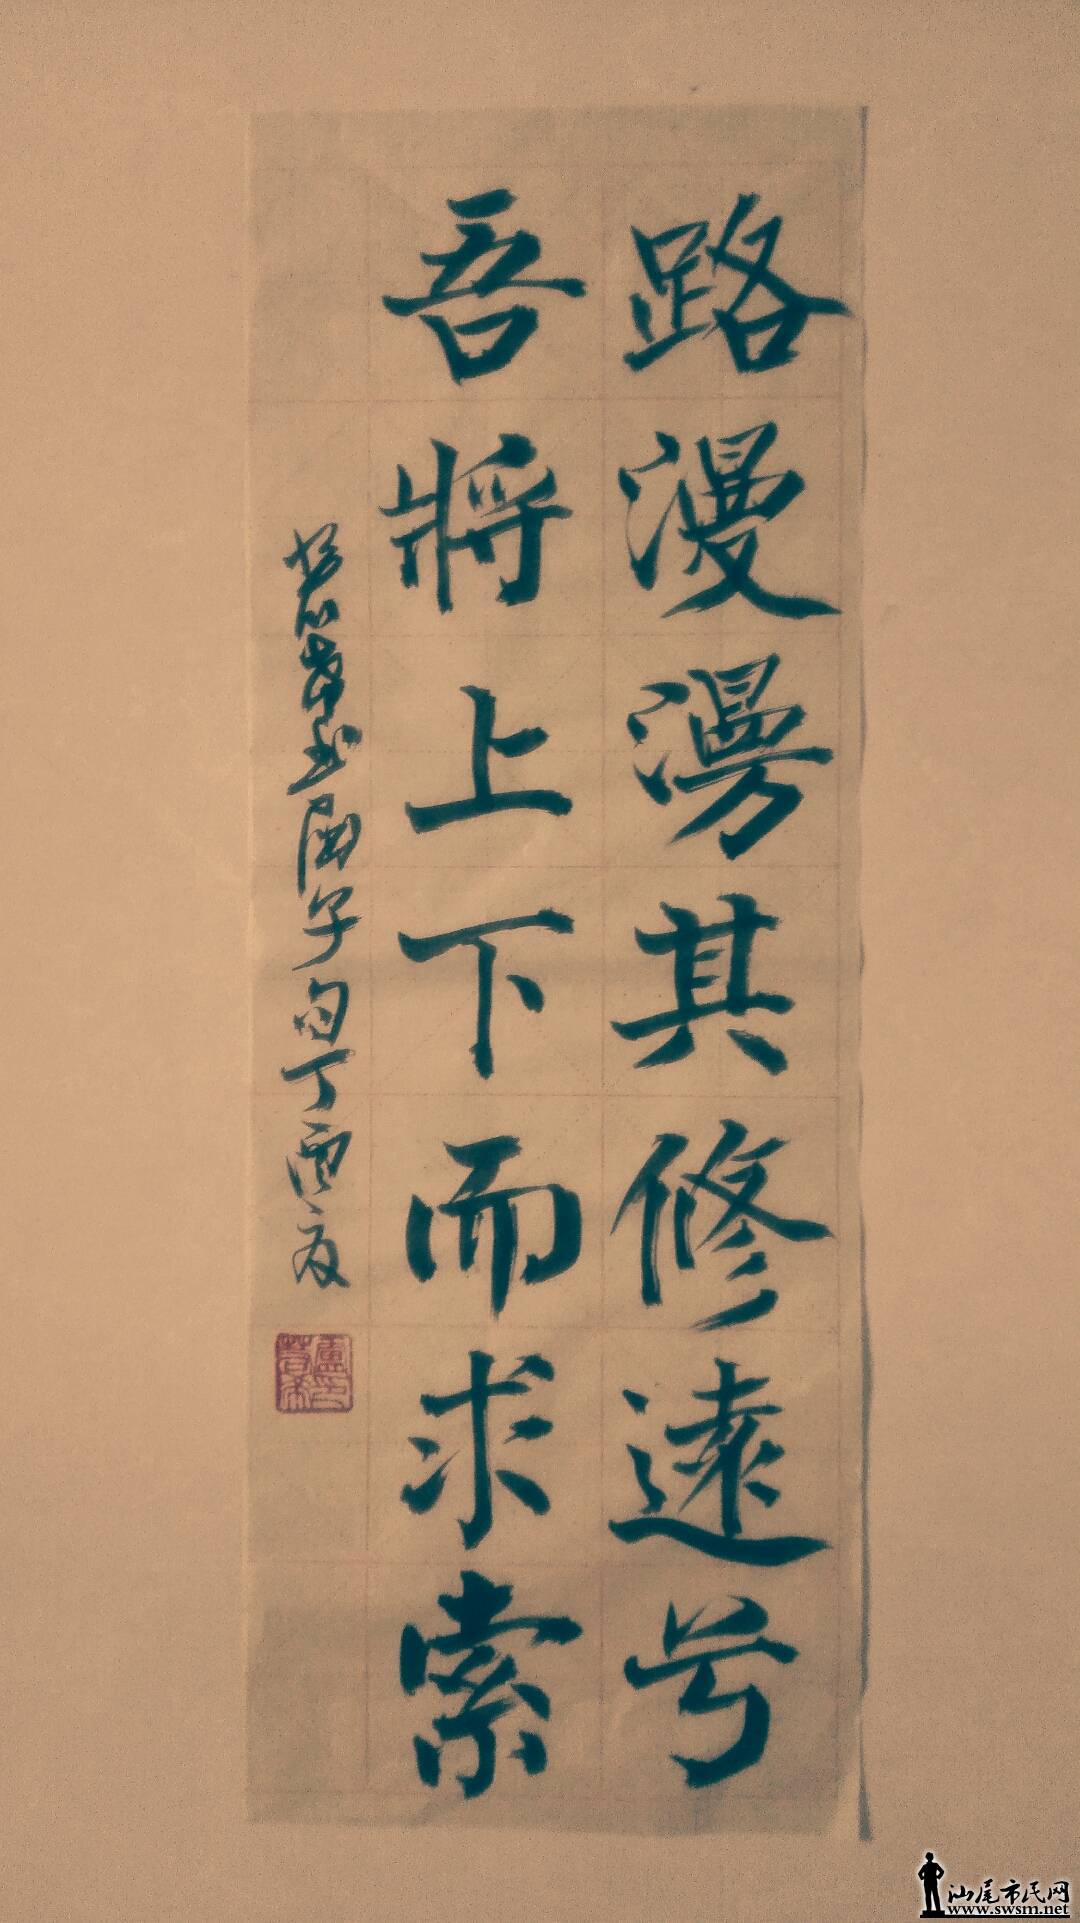 路漫漫其修遠兮
吾將上下而求索
屈子句丁酉夏
汕尾市民网
www.swsm.net